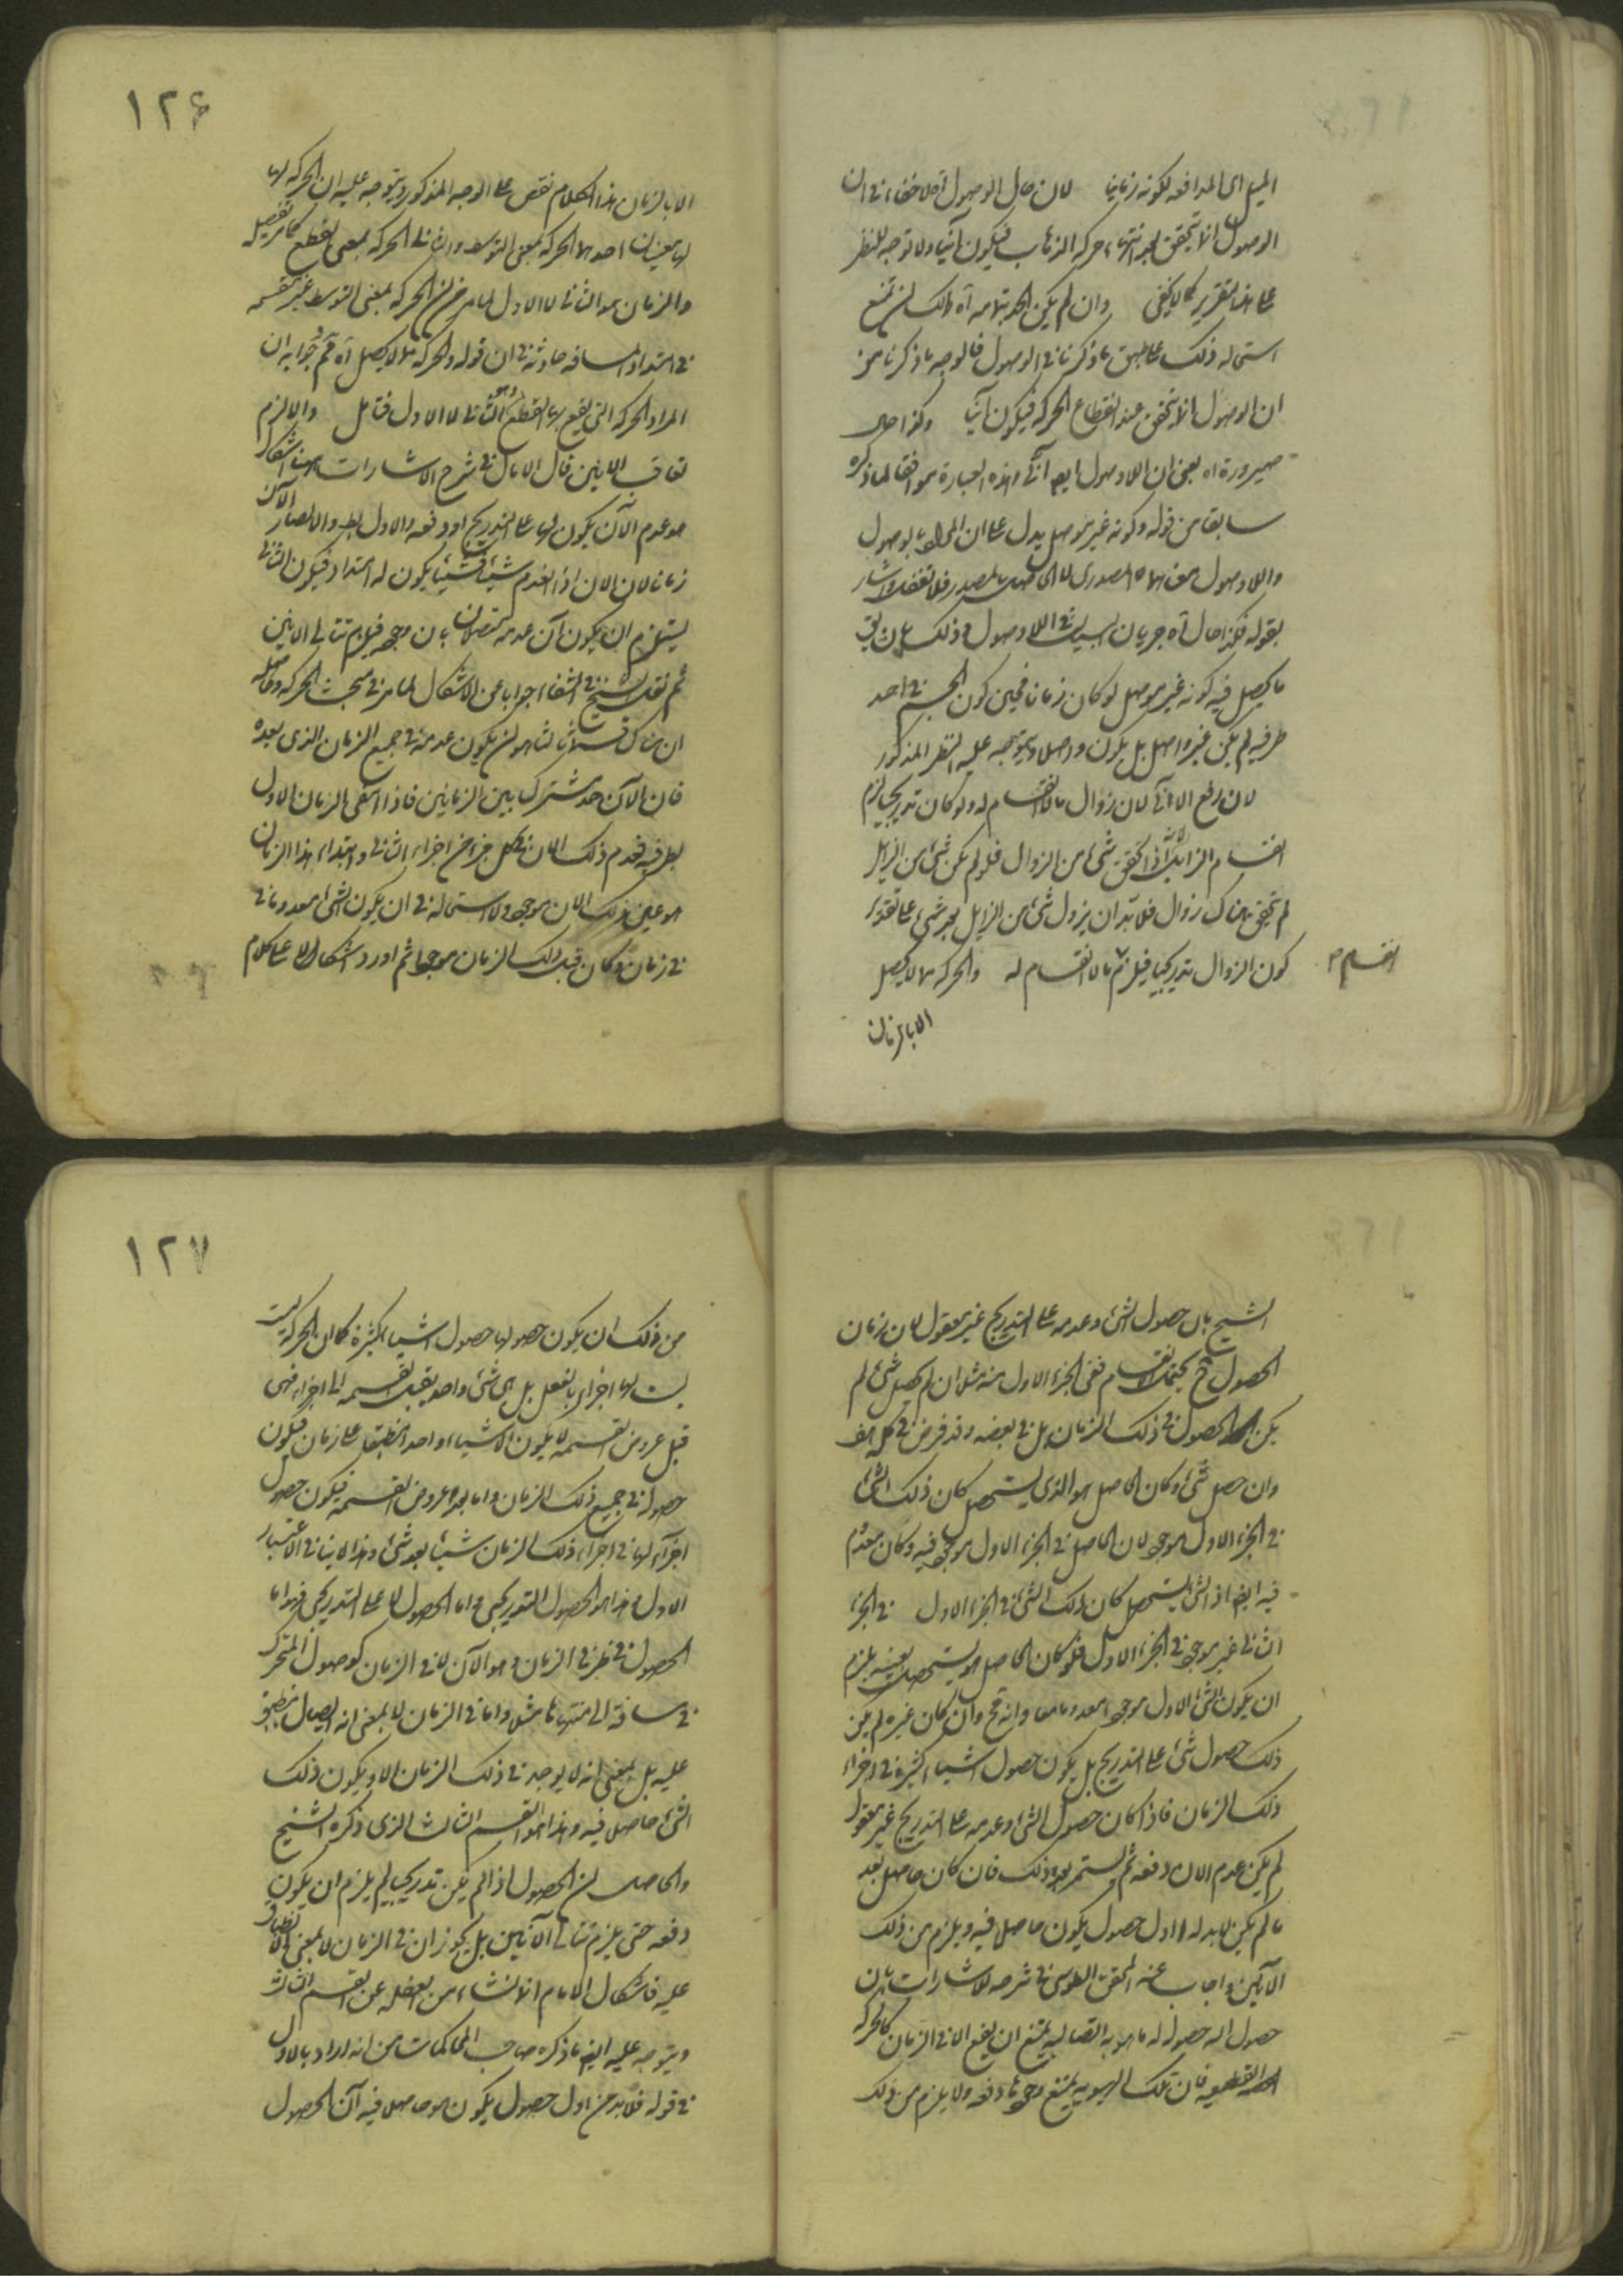 الميل اى المدافعه لكونه زمانيا لان حال الوصول آه لا خفاء فى ان
الوصول انما يتحقق بعد انتهاء حركه الذهاب فيكون آنيا ولا توجه للنظر
على هذا التقرير كما لا يخفى وان لم يكن الحد بتمامه آه ولك ان تمنع
استحاله ذلك على طبق ما ذكرنا فى الوصول فالوجه ما ذكرنا من
ان الوصول انما يتحقق عند انقطاع الحركه فيكون آنيا وكذا حال
صيرورة اه يعنى ان اللاوصول ايضا آنى وهذه العبارة موافقا لما ذكره
سابقا من قوله وكونه غير موصل يدل على ان المراد بالوصول
واللاوصول معناهما المصدرى لا الحاصل بالمصدر فلا تغفل واشار
بقوله فكذا حال آه جريان الدليل فى اللاوصول وذلك بان يق
ما يحصل فيه كونه غير موصل لو كان زمانا فحين كون الجسم فى احد
طرفيه لم يكن غير واصل بل يكون واصلا ويتوجه عليه النظر المذكور
لان رفع الآنى لان زوال ما لا انقسام له ولو كان تدريجيا لزم
انقسام الزايل اذا تحقق شئ من الزوال فلو لم يكن شئ من الزايل
لم يتحقق هناك زوال فلا بد ان يزول شئ من الزايل بعد شئ على تقدير
كون الزوال تدريجيا فيلزم ما لا انقسام له والحركه لا يحصل
انقسام م
الا بالزمان
١٢۶
الا بالزمان هذا الكلام نقض على الوجه المذكور ويتوجه عليه ان الحركه لها
لها معنيان احدهما الحركه بمعنى التوسط والثانى الحركه بمعنى القطع كما مر تفصيله
والزمان هو الثانى لا الاول لما مر من ان الحركه بمعنى التوسط غير منقسمه
فى امتداد المسافه حادثه فى ان قوله والحركه لا يحصل آه قم جوابه ان
المراد الحركه التى يقع بها القطع وهو الثانى لا الاول فتامل والا لزم
تعاقب الانين قال الامام فى شرح الاشارات ههنا اشكال
هو عدم الآن يكون لها على التدريج او دفعه والاول بط والا لصار الآن
زمانا لان الان اذا انعدم شيئا فشيئا يكون له امتداد فيكون الثانى
يستلزم ان يكون آن عدمه متصلا بان وجوده فيلزم تتالى الانين
ثم نقل الشيخ فى الشفاء جوابا عن الاشكال لما مر فى مبحث الحركه وحاصله
ان هناك قسما ثالثا هو ان يكون عدمه فى جميع الزمان الذى بعده
فان الآن حد مشترك بين الزمانين فاذا انتفى الزمان الاول
بطرفيه فعدم ذلك الان فى كل جزء من اجزاء الثانى وابتداء هذا الزمان
هو عين ذلك الان موجود ولا استحاله فى ان يكون الشئ معدوما فى
فى زمان وكان قبل ذلك الزمان موجودا ثم اورد اشكالا على كلام
الشيخ بان حصول الشئ وعدمه على التدريج غير معقول لان زمان
الحصول ح يحتمل الانقسام ففى الجزء الاول منه مثلا ان لم يحصل شئ لم
يكن الحصول فى ذلك الزمان بل فى بعضه وقد فرض فى كله هف
وان حصل شئ وكان الحاصل هو الذى يستحصل كان ذلك الشئ
فى الجزء الاول موجودا لان الحاصل فى الجزء الاول موجود فيه وكان معدوم
فيه ايضا اذ الشئ المستحصل كان ذلك الشئ فى الجزء الاول فى الجزء
الثانى غير موجود فى الجزء الاول فلو كان الحاصل هو المستحصل بعينه يلزم
ان يكون الشئ الاول موجودا معدوما معا وانه مح وان كان غيره لم يكن
ذلك حصول شئ على التدريج بل يكون حصول اشياء كثيرة فى اجزاء
ذلك الزمان فاذا كان حصول الشئ وعدمه على التدريج غير معقول
لم يكن عدم الان الا دفعه ثم يستمر بعد ذلك فان كان حاصلا بعد
ما لم يكن لا بد له اول حصول يكون حاصلا فيه ويلزم من ذلك
الآنين واجاب عنه المحقق الطوسى فى شرحه للاشارات بان
حصول اله حصول له ما هو به اتصاليه يمتنع ان يقع الا فى الزمان كالحركه
القطعيه فان تلك الهويه يمتنع وجودها دفعه ولا يلزم من ذلك
١٢٧
من ذلك ان يكون حصولها حصول اشياء كثيرة كما ان الحركه ليست
ليست لها اجزاء بالفعل بل هى شئ واحد يقبل القسمه الى اجزاء فهى
قبل عروض القسمه لا يكون الا شيئا واحدا منطبقا على زمان فيكون
حصوله فى جميع ذلك الزمان واما بعد عروض القسمه فيكون حصول
اجزاء لها فى اجزاء ذلك الزمان شيئا بعد شئ وهذا لا ينافى الاعتبار
الاول وهذا هو الحصول التدريجى واما الحصول لا على التدريجى فهو اما
الحصول فى طرف الزمان وهو الآن لا فى الزمان كوصول المتحرك
فى مسافته الى منتهاها مثلا واما فى الزمان لا بمعنى انه اتصال منطبق
عليه بل بمعنى انه لا يوجد فى ذلك الزمان الا ويكون ذلك
الشئ حاصلا فيه وهذا هو القسم الثالث الذى ذكره الشيخ
والحاصل ان الحصول اذا لم يكن تدريجيا لم يلزم ان يكون
دفعه حتى يلزم تتالى الآنين بل يجوز ان فى الزمان لا بمعنى الانطباق
عليه فاشكال الامام انما نشاء من الغفله عن القسم الثالث
ويتوجه عليه ايضا ما ذكره صاحب المحاكمات من انه اراد بالاول
فى قوله فلا بد من اول حصول يكون هو حاصلا فيه آن الحصول